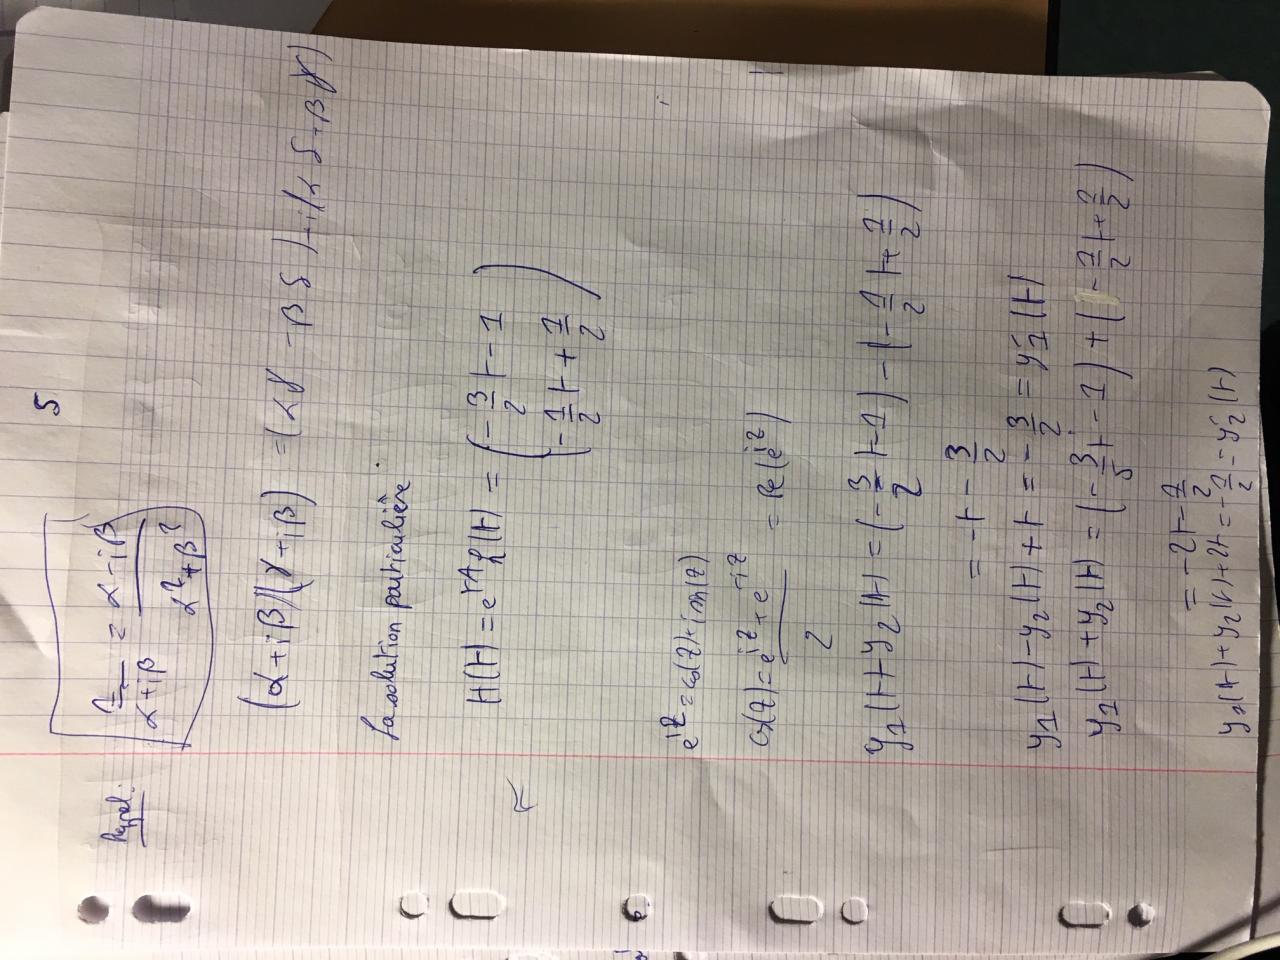 5
Rappel: 1/(α+iβ) = (α-iβ)/(α²+β²)
(α+iβ)(γ+iβ) = (αγ-βδ)+i(αδ+βγ)
La solution particulière.
H(t) = e^{tA} (t) = (-3/2 t - 1
-1/2 t + 1/2)
e^{iz} = cos(z)+i sin(z)
cos(z) = (e^{iz}+e^{-iz})/2 = Re(e^{iz})
y₁(t)+y₂(t) = (-3/2 t-1) - (-1/2 t+1/2)
= -t - 3/2
y₁(t)-y₂(t)+t = -3/2 = y₁'(t)
y₁(t)+y₂(t) = (-3/5 t-1) + (-1/2 t+1/2)
= -2t - 1/2
y₁(t)+y₂(t)+2t = -1/2 = y₂'(t)